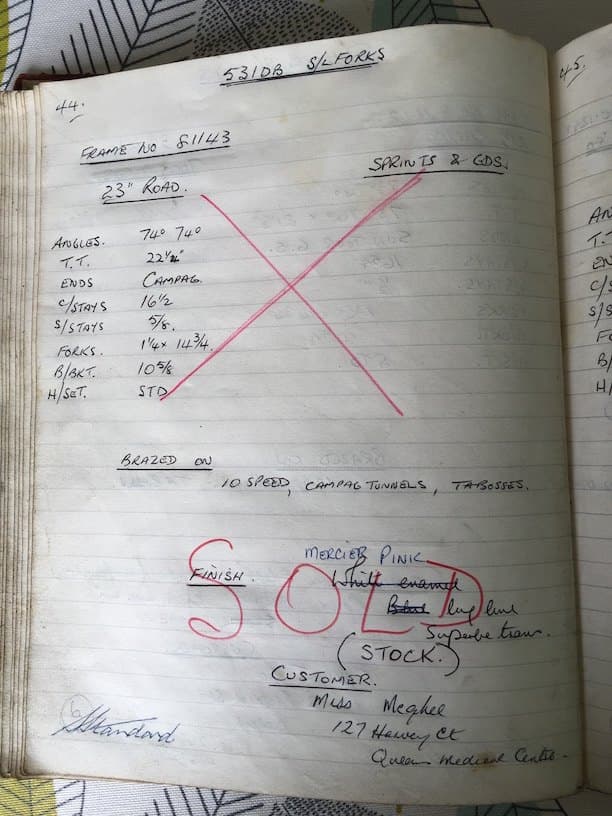 531DB S/L FORKS
44.
FRAME NO 81143
SPRINTS & GDS.
23" ROAD.
ANGLES. 74° 74°
T.T. 22¼"
ENDS CAMPAG.
C/STAYS 16½
S/STAYS 5/8.
FORKS. 1¼ x 14¾.
B/BKT. 10 5/8
H/SET. STD
BRAZED ON
10 SPEED, CAMPAG TUNNELS, TABOSSES.
MERCIER PINK
FINISH. White enamel
Blue lug line
Superbe trans.
SOLD
(STOCK.)
CUSTOMER.
Miss Meghee
127 Harvey Ct
Queens Medical Centre
Standard
45.
AN
T.T
EN
C/S
S/S
FO
B/
H/